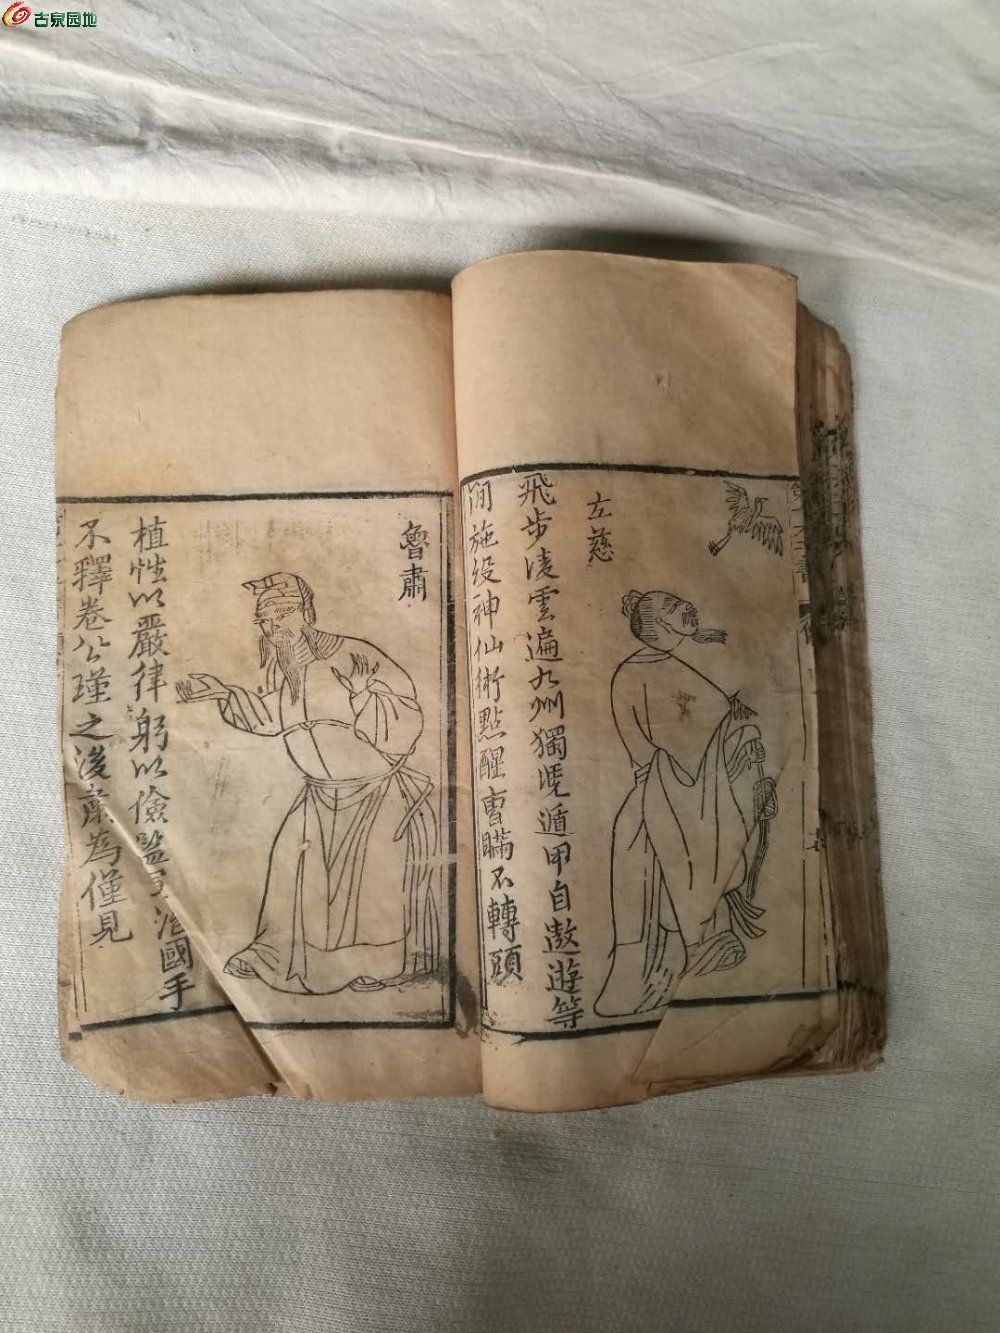 古泉园地
左慈
飛步淩雲遍九州獨憑遁甲自遨遊等
閒施設神仙術點醒曹瞞不轉頭
魯肅
植性以嚴律躬以儉 治國手
不釋卷公瑾之後肅為僅見